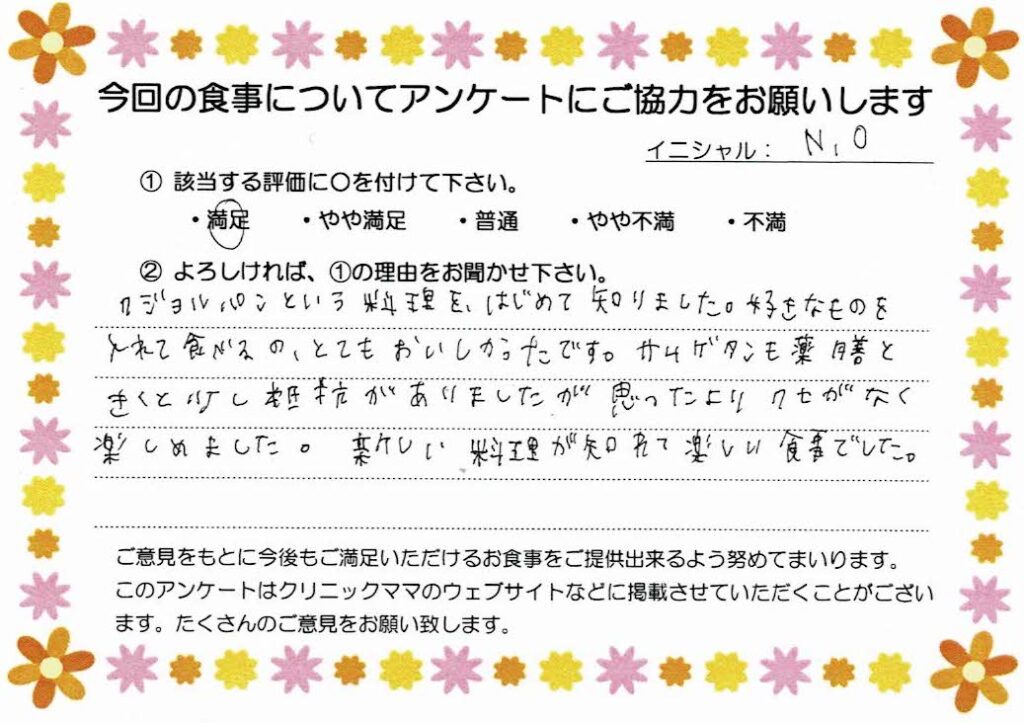 今回の食事についてアンケートにご協力をお願いします
イニシャル： N,O
① 該当する評価に○を付けて下さい。
・満足 ・やや満足 ・普通 ・やや不満 ・不満
② よろしければ、①の理由をお聞かせ下さい。
クジョルパンという料理を、はじめて知りました。好きなものを
とれて食べるの、とてもおいしかったです。サムゲタンも薬膳と
きくと少し抵抗がありましたが思ったよりクセがなく
楽しめました。新しい料理が知れて楽しい食事でした。
ご意見をもとに今後もご満足いただけるお食事をご提供出来るよう努めてまいります。
このアンケートはクリニックママのウェブサイトなどに掲載させていただくことがござい
ます。たくさんのご意見をお願い致します。